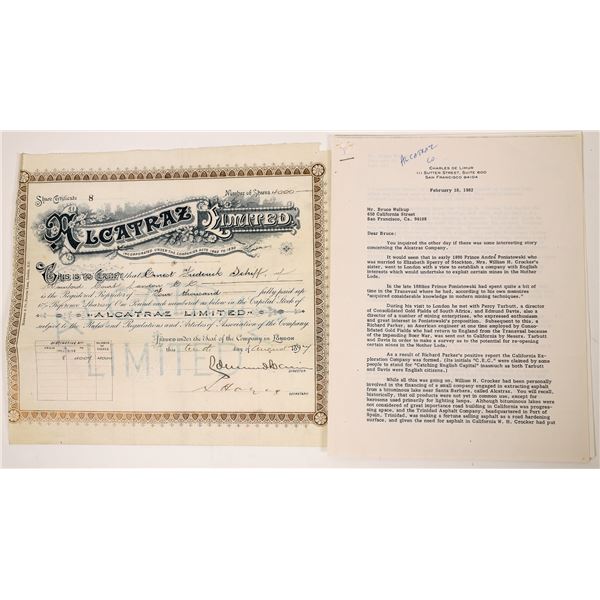 Share Certificate 8 Number of Shares 4000
ALCATRAZ LIMITED.
INCORPORATED UNDER THE COMPANIES ACTS 1862 TO 1890
THIS IS TO CERTIFY that Ernest Frederick of
Court London E.C.
is the Registered Proprietor of Four thousand fully paid up
Preference Shares of One Pound each numbered as below in the Capital Stock of
ALCATRAZ LIMITED
subject to the Rules and Regulations and Articles of Association of the Company
Given under the Seal of the Company in London
this day of August 1897
LIMITED
DIRECTOR
SECRETARY
ALCATRAZ
CO
CHARLES DE LIMUR
111 SUTTER STREET, SUITE 600
SAN FRANCISCO 94104
February 18, 1982
Mr. Bruce Walkup
650 California Street
San Francisco, Ca. 94108
Dear Bruce:
You inquired the other day if there was some interesting story
concerning the Alcatraz Company.
It would seem that in early 1890 Prince André Poniatowski who
was married to Elizabeth Sperry of Stockton, Mrs. William H. Crocker's
sister, went to London with a view to establish a company with English
interests which would undertake to exploit certain mines in the Mother
Lode.
In the late 1880s Prince Poniatowski had spent quite a bit of
time in the Transvaal where he had, according to his own memoires
"acquired considerable knowledge in modern mining techniques".
During his visit to London he met with Percy Tarbutt, a director
of Consolidated Gold Fields of South Africa, and Edmund Davis, also a
director of a number of mining enterprises, who expressed enthusiasm
and great interest in Poniatowski's proposition. Subsequent to this, a
Richard Parker, an American engineer at one time employed by Conso-
lidated Gold Fields who had returned from the Transvaal because of
the impending Boer War, was sent out to California by Messrs. Tarbutt
and Davis in order to make a survey as to the potential for re-opening
certain mines in the Mother Lode.
As a result of Richard Parker's positive report the California Ex-
ploration Company was formed. (Its initials "C.E.C." were claimed by some
people to stand for "Catching English Capital" inasmuch as both Tarbutt
and Davis were English citizens.)
While all this was going on, William H. Crocker had been personally
involved in the financing of a small company engaged in extracting asphalt
from a bituminous lake near Santa Barbara, called Alcatraz. You will recall,
historically, that oil products were not yet in common use, except for
kerosene used primarily for lighting lamps. Although bituminous lakes were
not considered of great importance road building in California was progres-
sing apace, and the Trinidad Asphalt Company, headquartered in Port of
Spain, Trinidad, was making a fortune selling asphalt as a road hardening
surface, and given the need for asphalt in California W. H. Crocker had put